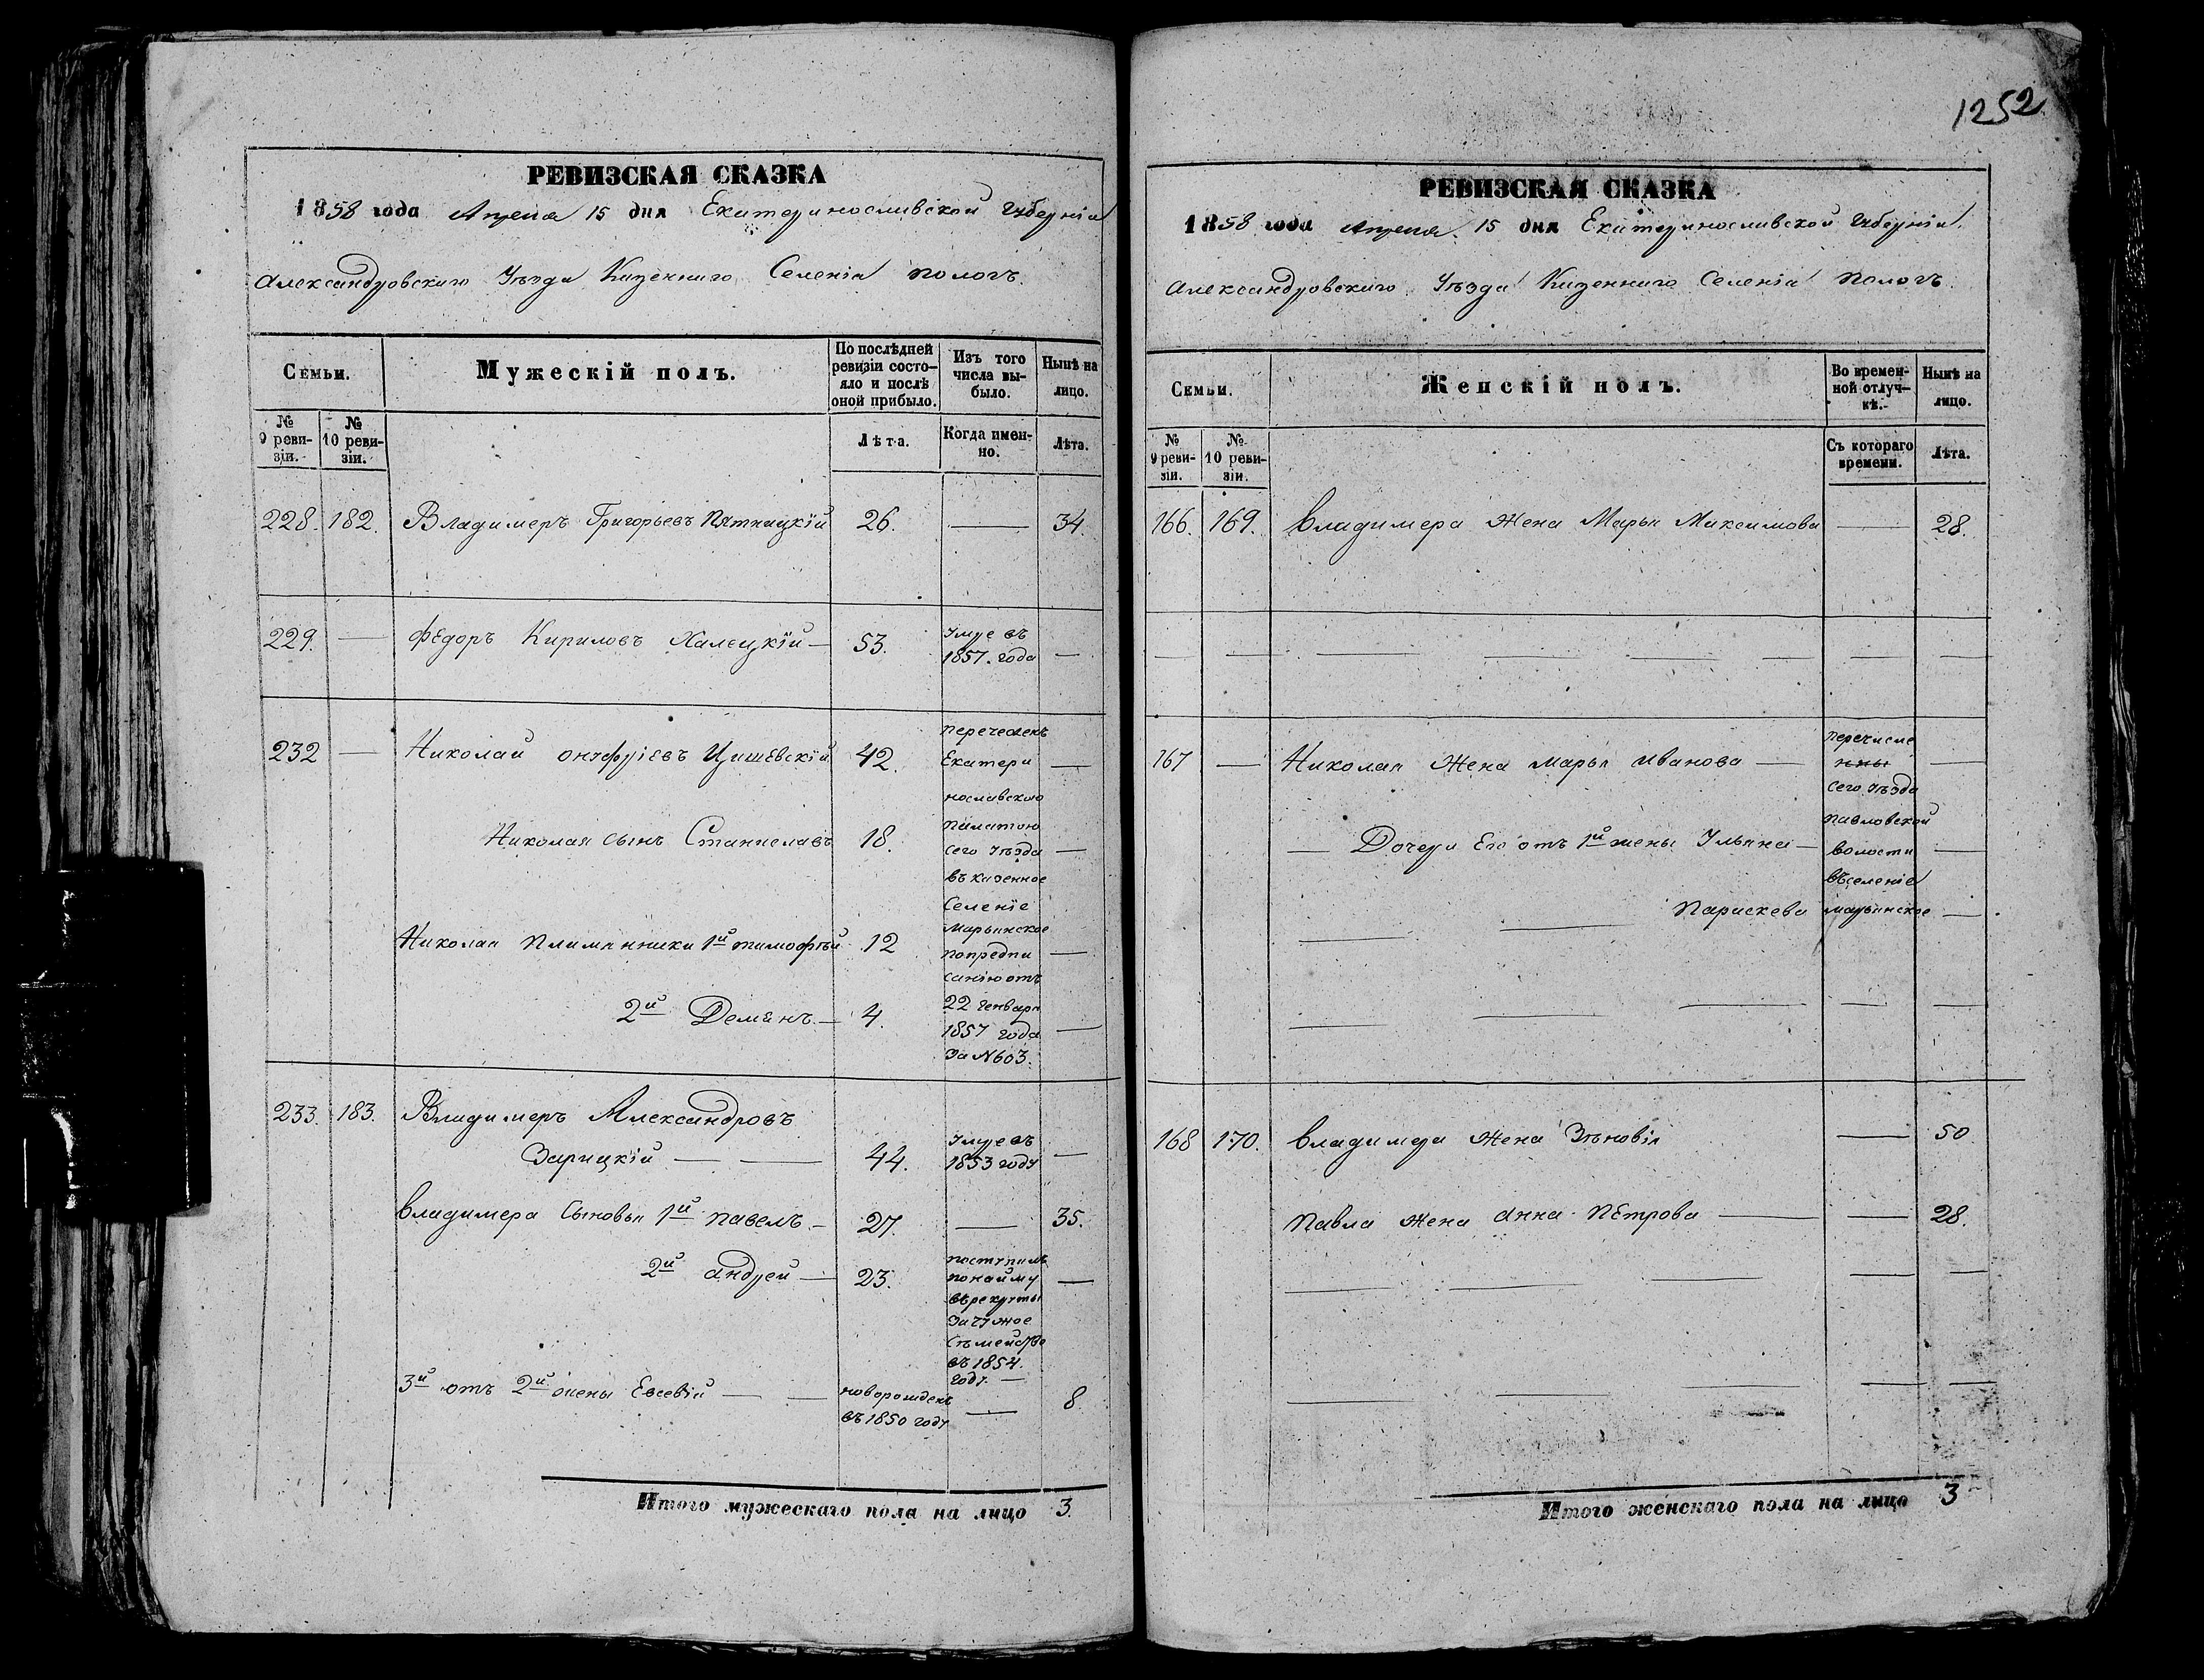 1252
РЕВИЗСКАЯ СКАЗКА
1858 года Апреля 15 дня Екатеринославской Губерніи
Александровскаго Уѣзда Казеннаго Селенія Пологъ.
Семьи.
Мужескій полъ.
По послѣдней ревизіи состояло и послѣ оной прибыло.
Изъ того числа выбыло.
Нынѣ на лицо.
№ 9 ревизіи.
№ 10 ревизіи.
Лѣта.
Когда именно.
Лѣта.
228. 182. Владимеръ Григорьевъ Пятницкій 26. — 34.
229. — Федоръ Кириловъ Халецкій — 53.
Умре въ
1857. года —
232 — Николай Онуфріевъ Цишевскій 42. —
Николая сынъ Станиславъ 18. —
Николая Племянники 1й Тимофѣй 12 —
2й Демянъ — 4. —
перечеленъ
Екатери
нославскою
Палатою
сего Уѣзда
въ казенное
Селеніе
Марьинское
по предпи
санію отъ
22 Генваря
1857 года
За №603.
233. 183. Владимеръ Александровъ
Зарицкій — — 44.
Умре въ
1853 году —
Владимера Сыновья 1й Павелъ — 27. — 35.
2й Андрей — 23. —
поступилъ
по найму
въ рекруты
за чужое
Съмейство
въ 1854.
году. —
3й отъ 2й жены Евсевій — —
новорожденъ
въ 1850 году — 8.
Итого мужескаго пола на лицо 3.
РЕВИЗСКАЯ СКАЗКА
1858 года Апреля 15 дня Екатеринославской Губерніи.
Александровскаго Уѣзда Казеннаго Селенія Пологъ.
Семьи.
Женскій полъ.
Во временной отлучкѣ.
Нынѣ на лицо.
№ 9 ревизіи.
№ 10 ревизіи.
Съ котораго времени.
Лѣта.
166. 169. Владимера Жена Марья Максимова — 28.
167 — Николая Жена Марья Иванова — —
— Дочери Его отъ 1й жены Ульяна — —
Параскева —
перечисле
нны
сего Уѣзда
Павловской
волости
въ селеніе
марьинское
168 170. Владимера Жена Зѣновія — 50
Павла Жена Анна Петрова — — 28.
Итого женскаго пола на лицо 3